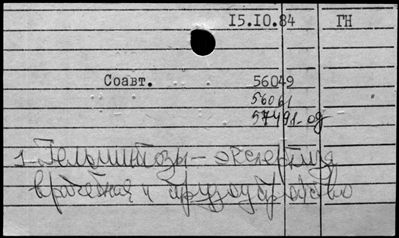 15.10.84 ГН
Соавт. 56049
56061
57491.од
1. Гельминтозы – экспертиза
врачебная и трудоустройство